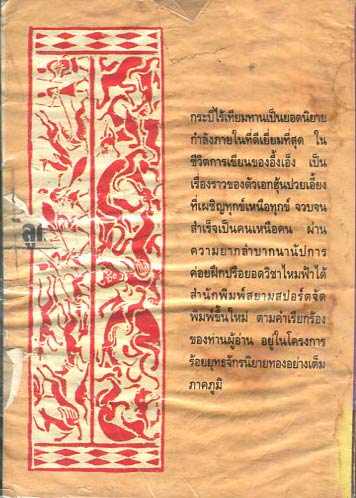 กระบี่ไร้เทียมทานเป็นยอดนิยาย
กำลังภายในที่ดีเยี่ยมที่สุด ใน
ชีวิตการเขียนของอึ้งเอ็ง เป็น
เรื่องราวของตัวเอกฮุ้นปวยเอี้ยง
ที่เผชิญทุกข์เหนือทุกข์ จวบจน
สำเร็จเป็นคนเหนือคน ผ่าน
ความยากลำบากนานัปการ
ค่อยฝึกปรือยอดวิชาไหมฟ้าได้
สำนักพิมพ์สยามสปอร์ตจัด
พิมพ์ขึ้นใหม่ ตามคำเรียกร้อง
ของท่านผู้อ่าน อยู่ในโครงการ
ร้อยยุทธจักรนิยายทองอย่างเต็ม
ภาคภูมิ